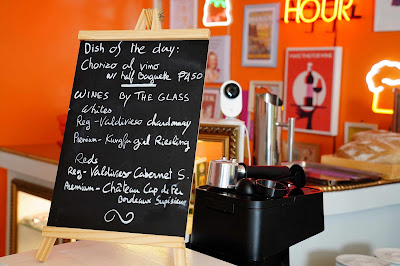 HOUR
Dish of the day:
Chorizo al vino
w/ half Baguette P250
WINES BY THE GLASS
Whites
Reg - Valdivieso chardonnay
Premium - Kungfu girl Riesling
Reds
Reg - Valdivieso Cabernet S.
Premium - Château Cap de Fer
Bordeaux Supérieur